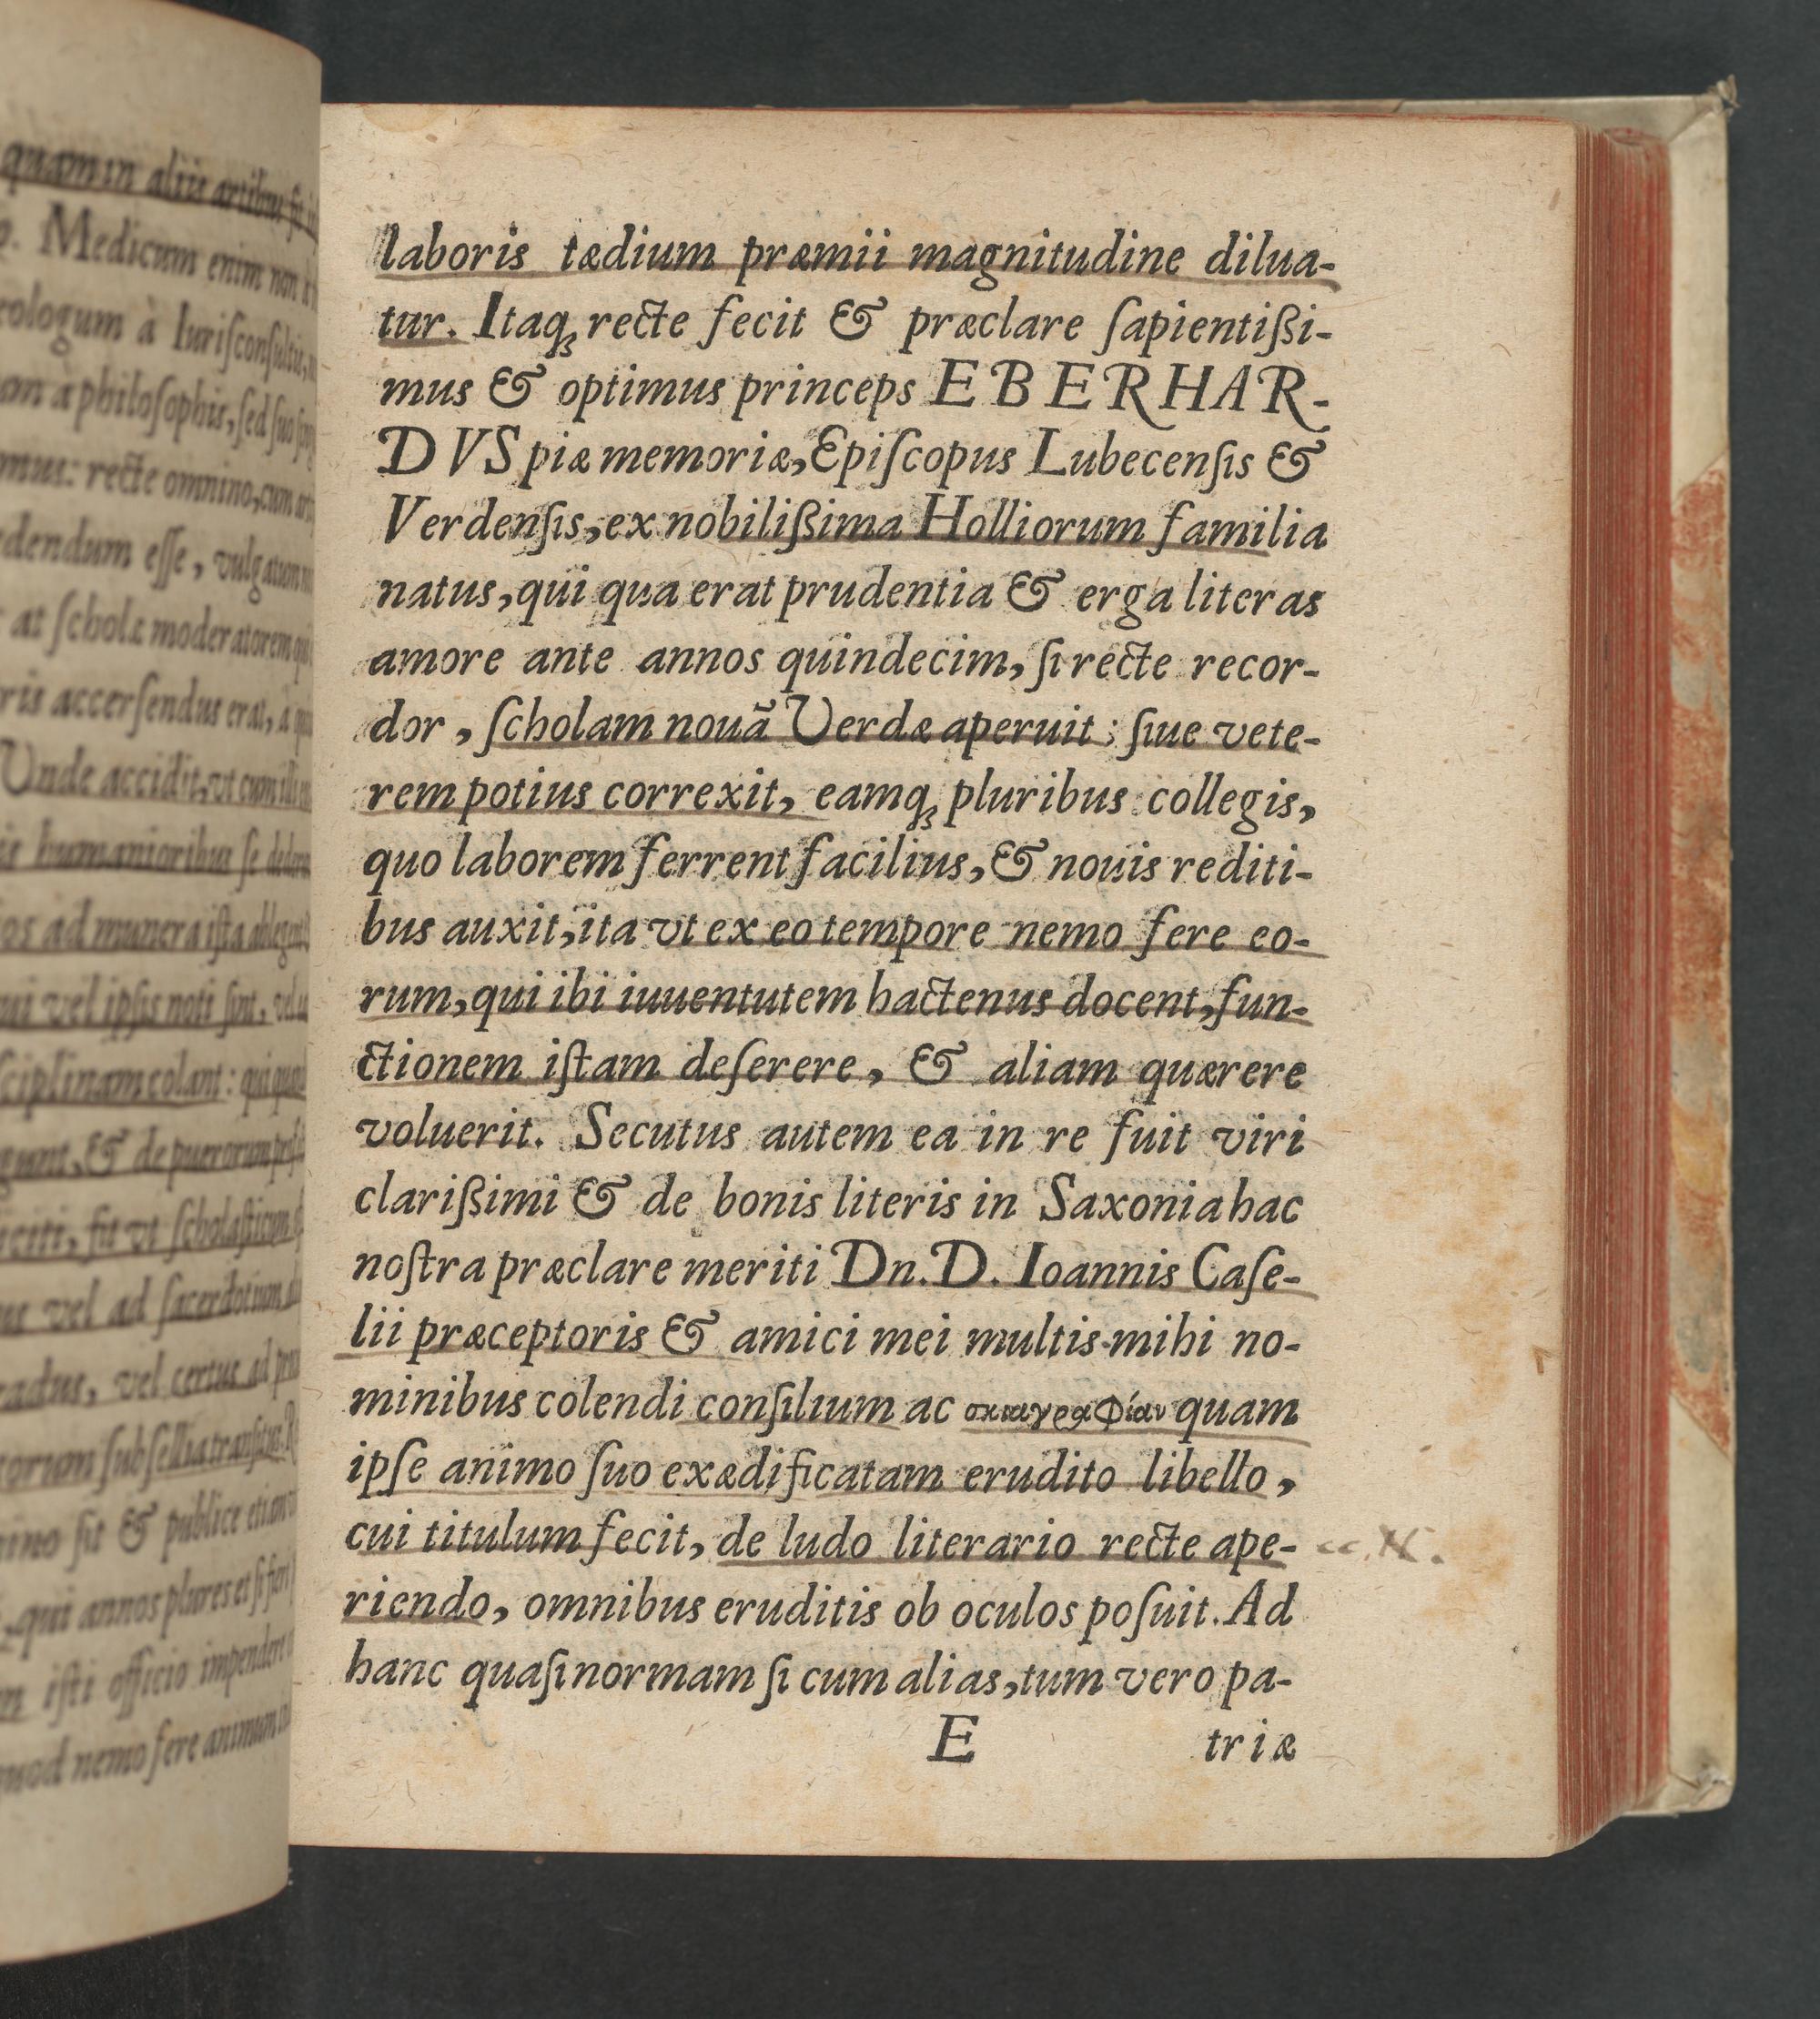 quam in aliis artibus
Medicum enim non
eologum à Iurisconsultis,
philosophis, sed suo
mus: recte omnino, cum
dendum esse, vulgatum
at scholæ moderatorem
ris accersendus erat, à
Unde accidit, vt cum
humanioribus se
os ad munera ista ableget
vel ipsis noti sint, vel
sciplinam colant: qui
gunt, & de puerorum
fit vt scholasticum
vel ad sacerdotium
radus, vel certus ad
torum subsellia transitus.
sit & publice etiam
qui annos plures et si
isti officio impendere
quod nemo fere animum
laboris tædium præmii magnitudine dilua-
tur. Itaq; recte fecit & præclare ſapientißi-
mus & optimus princeps EBERHAR-
DVS piæ memoriæ, Epiſcopus Lubecenſis &
Verdenſis, ex nobilißima Holliorum familia
natus, qui qua erat prudentia & erga literas
amore ante annos quindecim, ſi recte recor-
dor, ſcholam nouã Verdæ aperuit: ſiue vete-
rem potius correxit, eamq; pluribus collegis,
quo laborem ferrent facilius, & nouis rediti-
bus auxit, ita vt ex eo tempore nemo fere eo-
rum, qui ibi iuuentutem hactenus docent, fun-
ctionem iſtam deſerere, & aliam quærere
voluerit. Secutus autem ea in re fuit viri
clarißimi & de bonis literis in Saxonia hac
noſtra præclare meriti Dn. D. Ioannis Caſe-
lii præceptoris & amici mei multis mihi no-
minibus colendi conſilium ac σκιαγραφίαν quam
ipſe animo ſuo exædificatam erudito libello,
cui titulum fecit, de ludo literario recte ape-
riendo, omnibus eruditis ob oculos poſuit. Ad
hanc quaſi normam ſi cum alias, tum vero pa-
E triæ